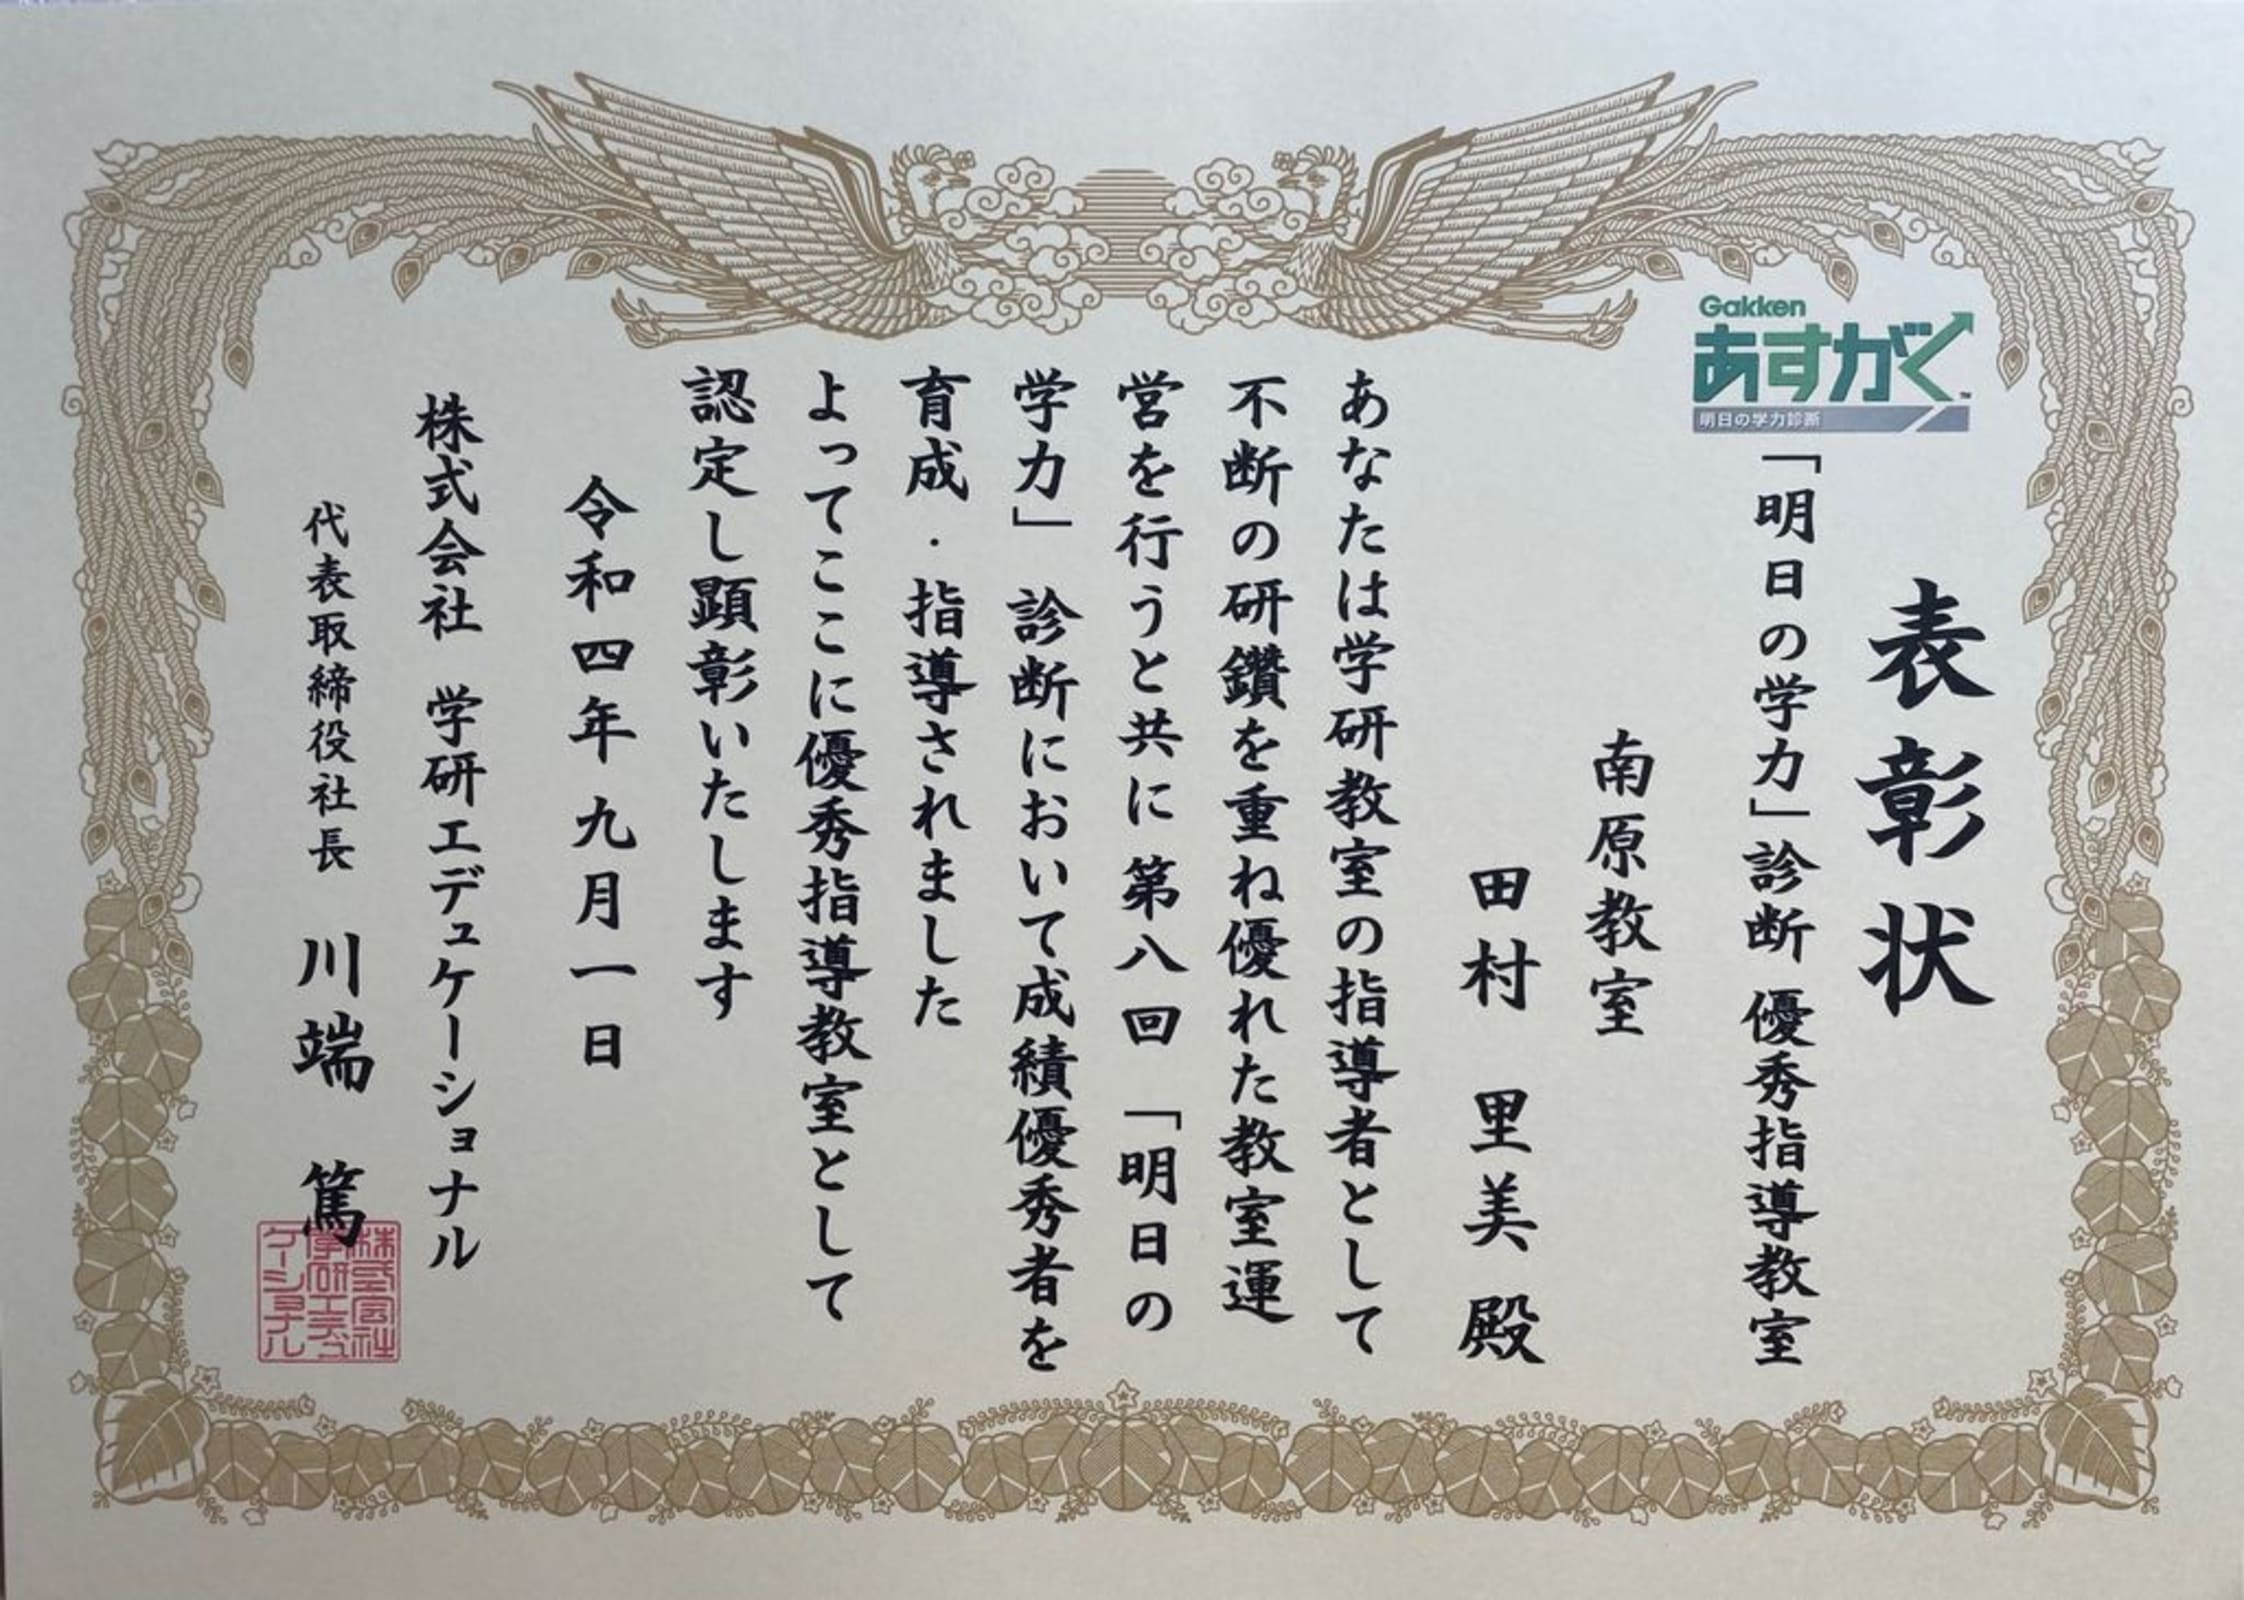 表彰状
Gakken
あすがく™
明日の学力診断
「明日の学力」診断 優秀指導教室
南原教室
田村 里美 殿
あなたは学研教室の指導者として
不断の研鑽を重ね優れた教室運
営を行うと共に第八回「明日の
学力」診断において成績優秀者を
育成・指導されました
よってここに優秀指導教室として
認定し顕彰いたします
令和四年九月一日
株式会社 学研エデュケーショナル
代表取締役社長 川端 篤
株式会社
学研エデュ
ケーショナル